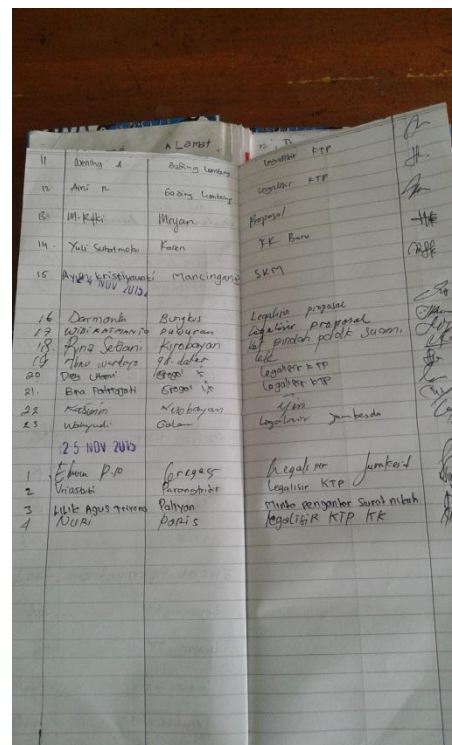 ALamat
11 Wening A Gading Lumbung Legalisir KTP
12 Aini R Gading Lumbung Legalisir KTP
13. M. Rifki Mriyan Proposal
14. Yuli Suhatmoko Karen KK Baru
15 Ayun Kristiyawati Mancingan SKM
24 NOV 2015
16 Darmanta Bungkus Legalisir proposal
17 WIDI RATMANTO Duwuran Legalisir proposal
18. Rina Setiani Kirobayan pindah
19 Ibnu wardoyo
20 Desi Utami Grogol Legalisir KTP
21. Grogol IX Legalisir KTP
22 Kirobayan Ijin
23 Wahyudi Galan Legalisir Jamkesda
25 NOV 2015
1 P.W Greges Legalisir
2 Vriastuti Parangtritis Legalisir KTP
3 Lilik Agus Triyono Paliyan Minta pengantar Surat nikah
4 NURI Paris legalisir KTP KK